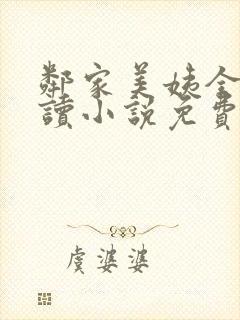 鄰家美姨全
讀小説免費
虞婆婆